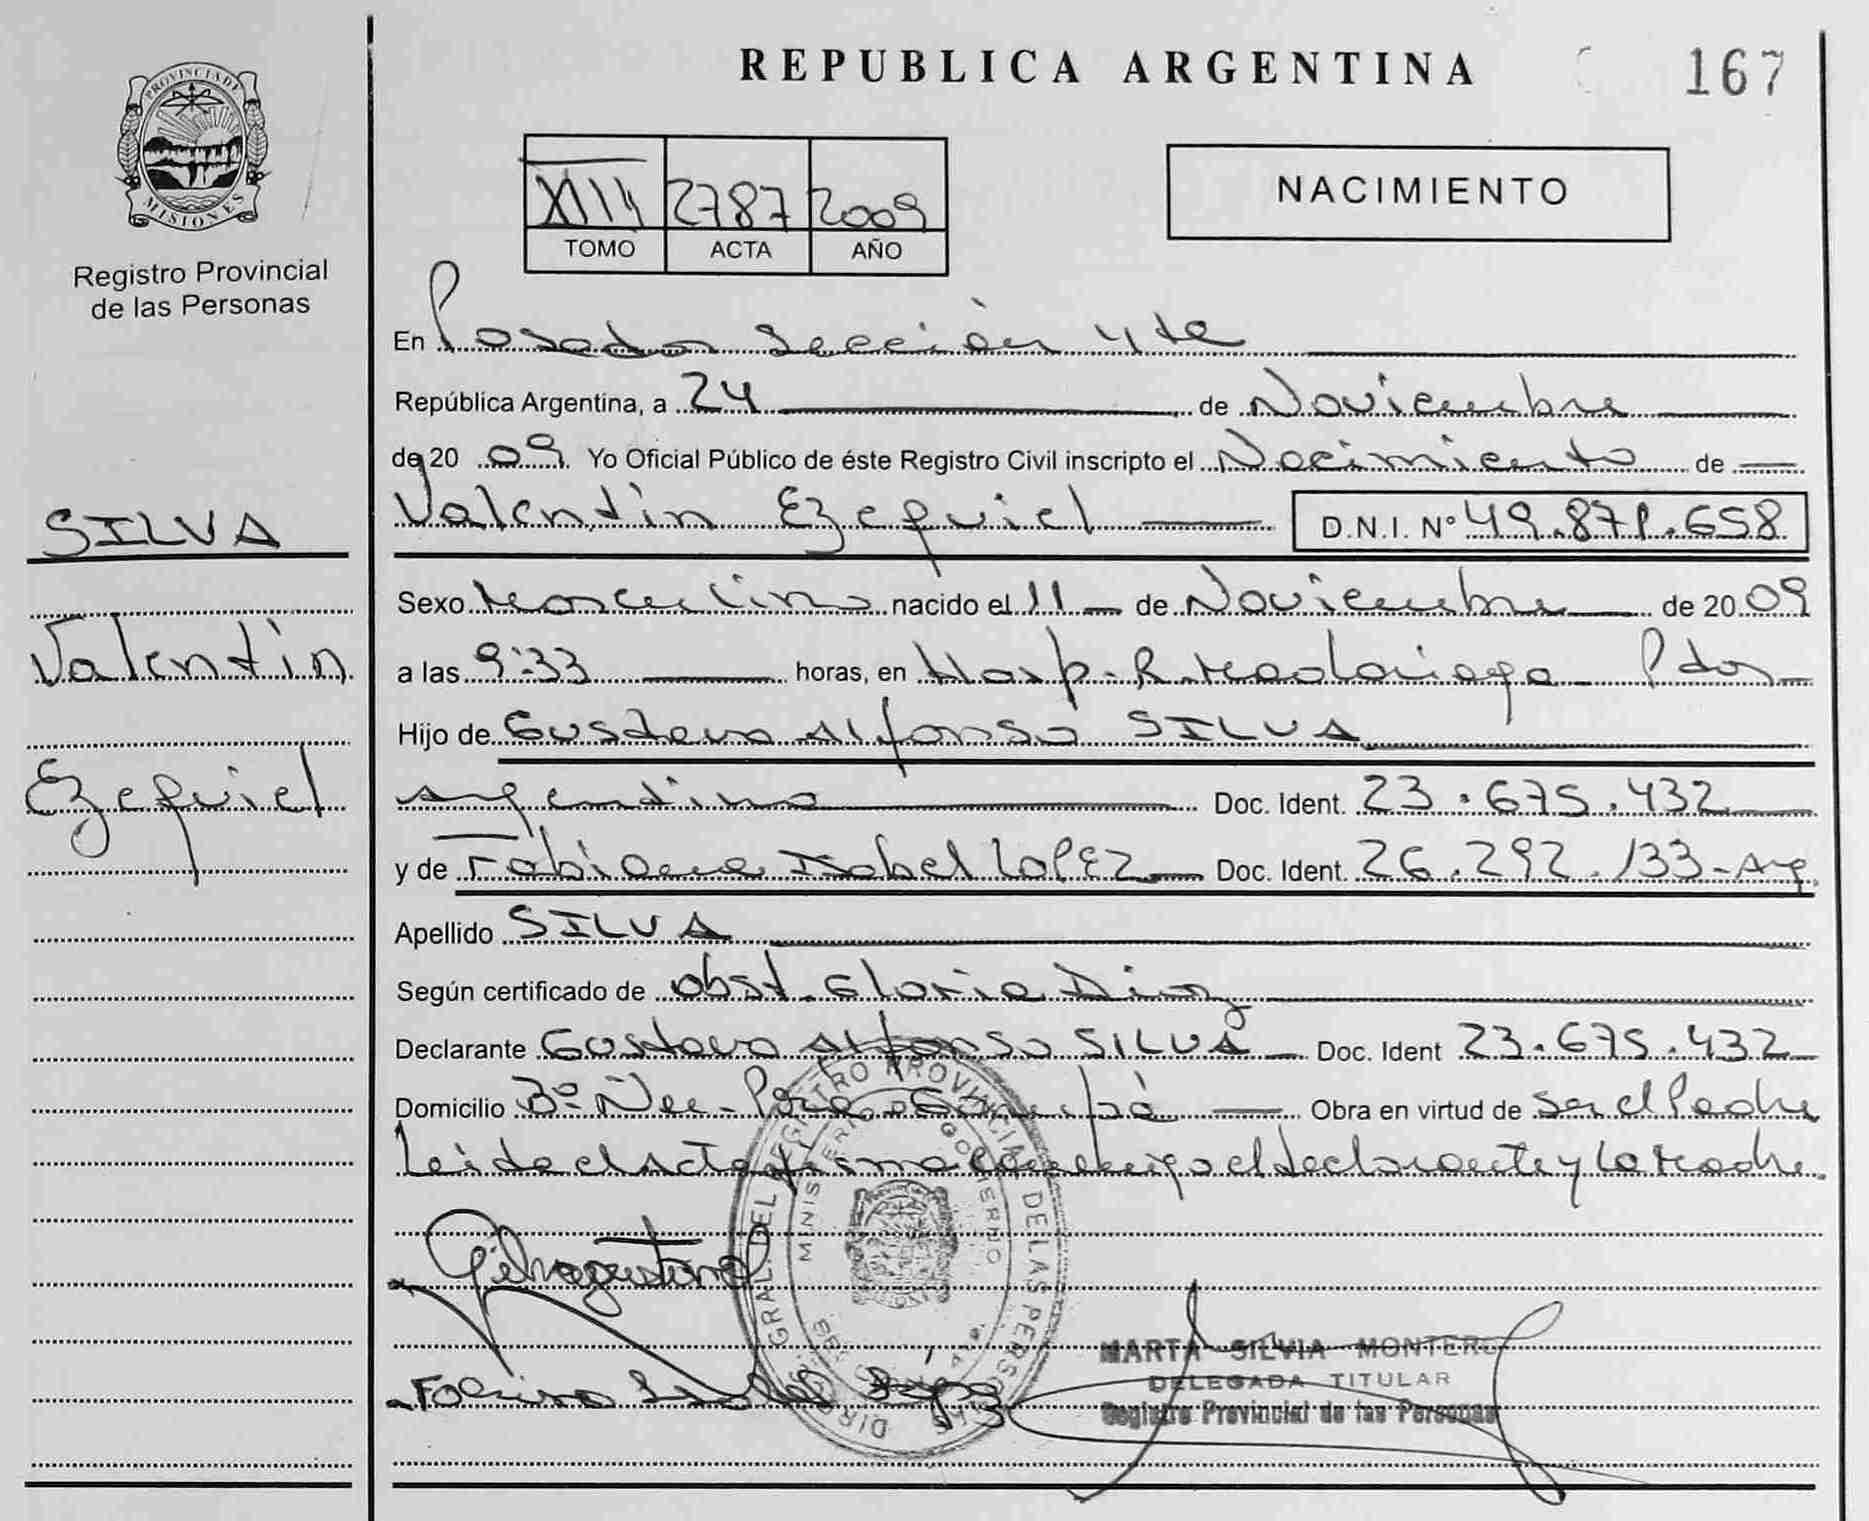 REPUBLICA ARGENTINA
167
PROVINCIA DE
MISIONES
Registro Provincial
de las Personas
XIII 2787 2009
TOMO ACTA AÑO
NACIMIENTO
En Posadas Sección 4ta
República Argentina, a 24 de Noviembre
de 20 09 Yo Oficial Público de éste Registro Civil inscripto el Nacimiento de
Valentín Ezequiel D.N.I. Nº 49.871.658
SILVA
Valentín
Ezequiel
Sexo Masculino nacido el 11 de Noviembre de 20 09
a las 9:33 horas, en Hosp. R. Madariaga - Pdas
Hijo de Gustavo Alfonso SILVA
argentino Doc. Ident. 23.675.432
y de Fabiana Isabel LOPEZ Doc. Ident. 26.292.133 - Arg.
Apellido SILVA
Según certificado de Obst. Gloria Diaz
Declarante Gustavo Alfonso SILVA Doc. Ident 23.675.432
Domicilio Bº Obra en virtud de ser el Padre
Leida el Acta firma conmigo el declarante y la Madre
DIRC. GRAL. DEL REGISTRO PROVINCIAL DE LAS PERSONAS
MINISTERIO GOBIERNO
MARTA SILVIA MONTERO
DELEGADA TITULAR
Registro Provincial de las Personas